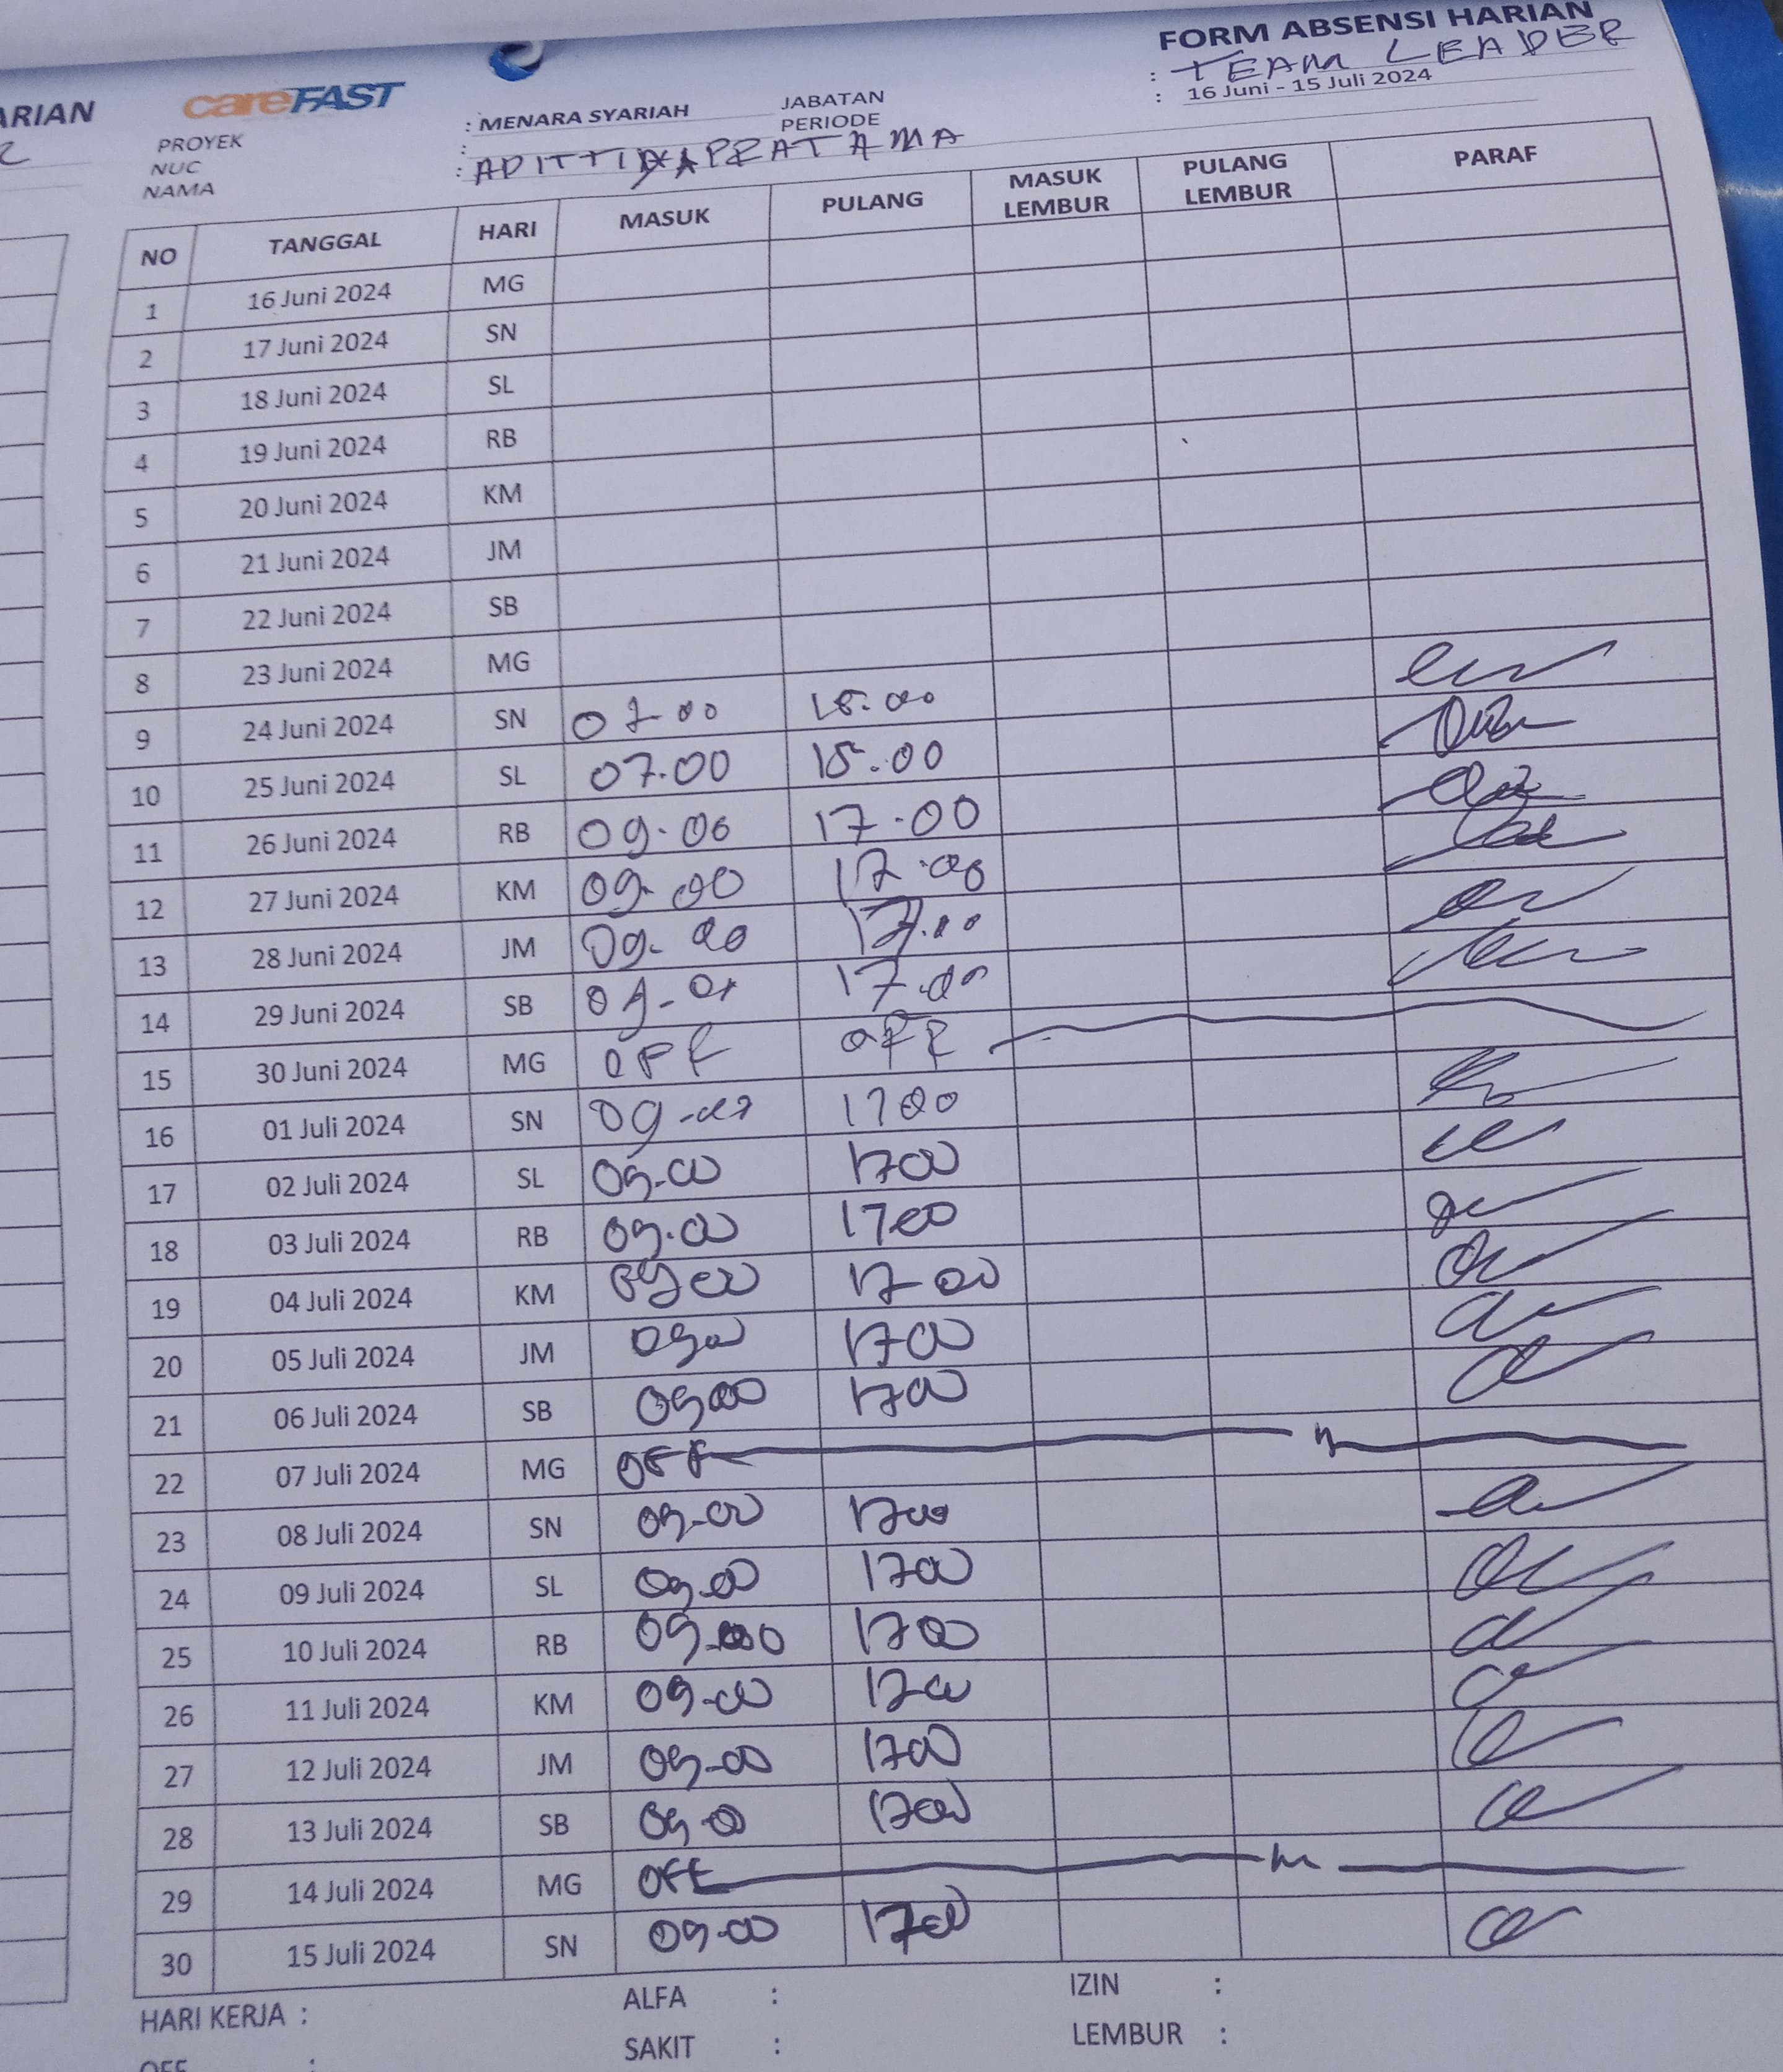 FORM ABSENSI HARIAN
ARIAN
careFAST
PROYEK : MENARA SYARIAH JABATAN : TEAM LEADER
NUC : PERIODE : 16 Juni - 15 Juli 2024
NAMA : PRATAMA
NO TANGGAL HARI MASUK PULANG MASUK LEMBUR PULANG LEMBUR PARAF
1 16 Juni 2024 MG
2 17 Juni 2024 SN
3 18 Juni 2024 SL
4 19 Juni 2024 RB
5 20 Juni 2024 KM
6 21 Juni 2024 JM
7 22 Juni 2024 SB
8 23 Juni 2024 MG
9 24 Juni 2024 SN 07-00 15.00
10 25 Juni 2024 SL 07.00 15.00
11 26 Juni 2024 RB 09.00 17.00
12 27 Juni 2024 KM 09.00 17.00
13 28 Juni 2024 JM 09-00 17.00
14 29 Juni 2024 SB 17.00
15 30 Juni 2024 MG OFF OFF
16 01 Juli 2024 SN 1700
17 02 Juli 2024 SL 09-00 1700
18 03 Juli 2024 RB 09.00 1700
19 04 Juli 2024 KM 0900 17-00
20 05 Juli 2024 JM 0900 1700
21 06 Juli 2024 SB 0900 1700
22 07 Juli 2024 MG OFF
23 08 Juli 2024 SN 09-00 1700
24 09 Juli 2024 SL 09.00 1700
25 10 Juli 2024 RB 1700
26 11 Juli 2024 KM 09-00 1700
27 12 Juli 2024 JM 09-00 1700
28 13 Juli 2024 SB 09-00 1700
29 14 Juli 2024 MG OFF
30 15 Juli 2024 SN 09-00 1700
HARI KERJA : ALFA : IZIN :
OFF : SAKIT : LEMBUR :